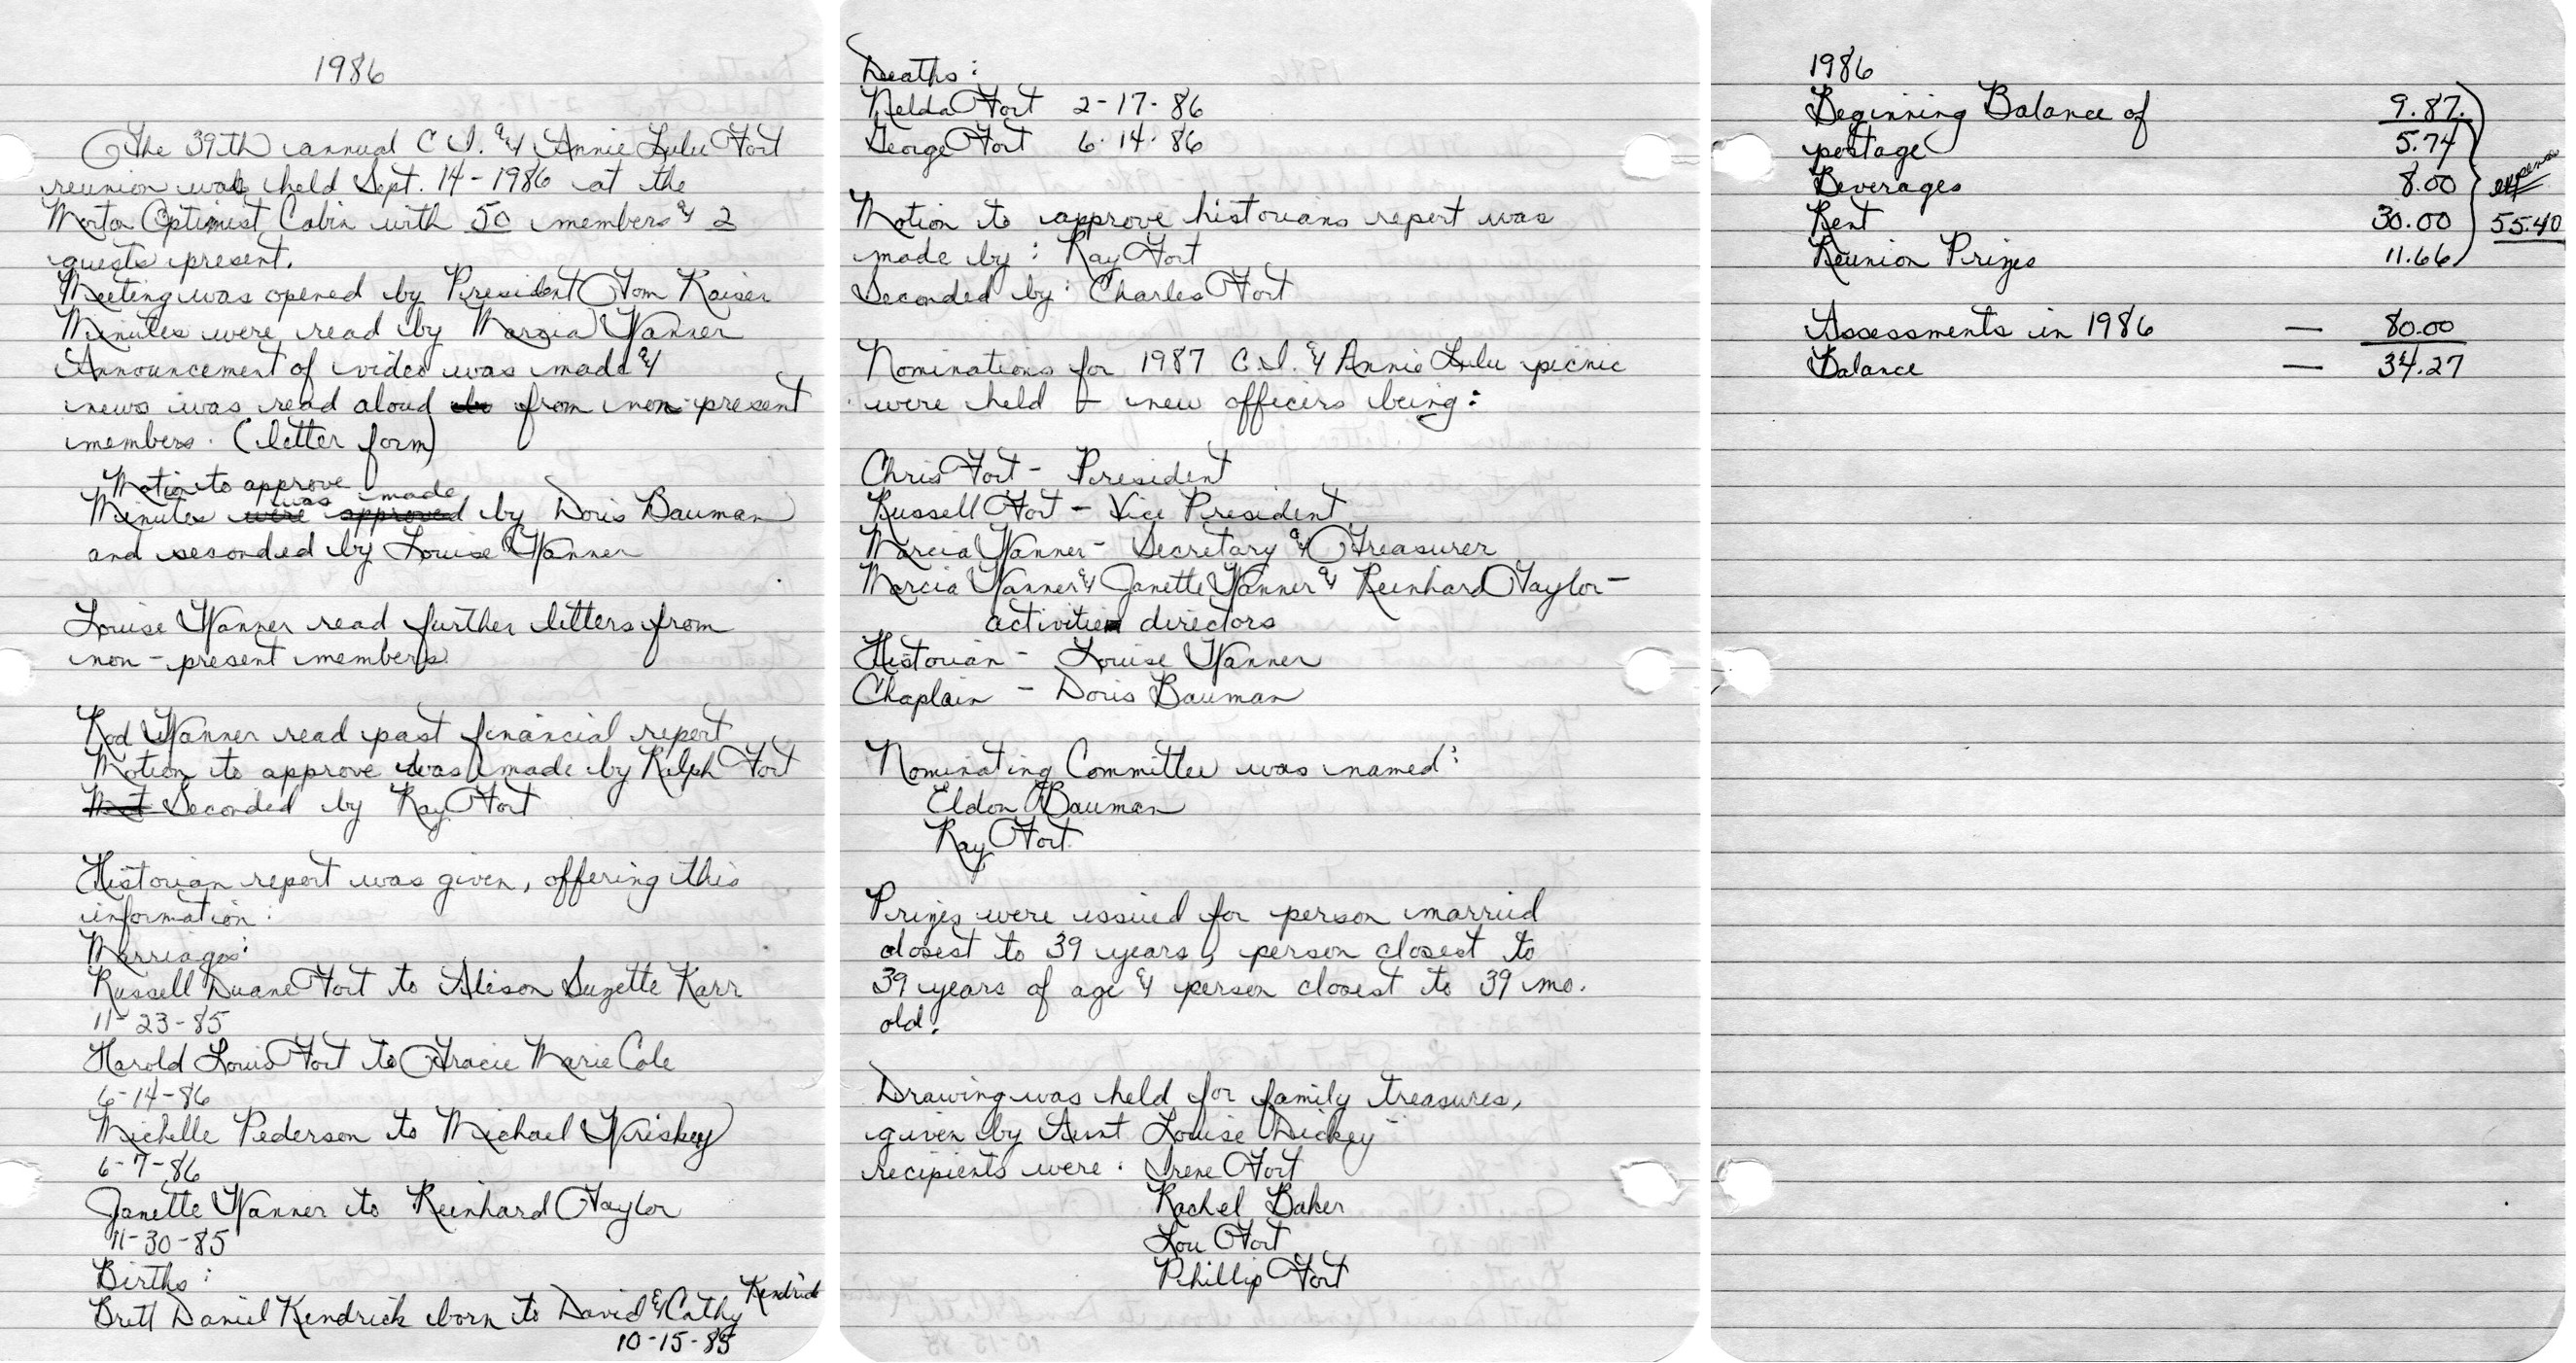 1986
The 39th annual C.I. & Annie Lulu Fort
reunion was held Sept. 14-1986 at the
Morton Optimist Cabin with 50 members & 2
guests present.
Meeting was opened by President Tom Kaiser
Minutes were read by Marcia Wanner
Announcement of video was made &
news was read aloud from non-present
members. (letter form)
Motion to approve
Minutes were was approved made by Doris Bauman
and seconded by Louise Wanner
Louise Wanner read further letters from
non-present members
Rod Wanner read past financial report
Motion to approve was made by Ralph Fort
Seconded by Ray Fort
Historian report was given, offering this
information:
Marriages:
Russell Duane Fort to Alison Suzette Karr
11-23-85
Harold Louis Fort to Tracie Marie Cole
6-14-86
Michelle Pederson to Michael Wriskey
6-7-86
Janette Wanner to Reinhard Taylor
11-30-85
Births:
Britt Daniel Kendrick born to David & Cathy Kendrick
10-15-85
Deaths:
Nelda Fort 2-17-86
George Fort 6-14-86
Motion to approve historians report was
made by: Ray Fort
Seconded by: Charles Fort
Nominations for 1987 C.I. & Annie Lulu picnic
were held - new officers being:
Chris Fort - President
Russell Fort - Vice President
Marcia Wanner - Secretary & Treasurer
Marcia Wanner & Janette Wanner & Reinhard Taylor -
activities directors
Historian - Louise Wanner
Chaplain - Doris Bauman
Nominating Committee was named:
Eldon Bauman
Ray Fort
Prizes were issued for person married
closest to 39 years, person closest to
39 years of age & person closest to 39 mo.
old.
Drawing was held for family treasures,
given by Aunt Louise Dickey -
recipients were: Irene Fort
Rachel Baker
Lou Fort
Phillip Fort
1986
Beginning Balance of 9.87
postage 5.74
Beverages 8.00 expenses
Rent 30.00 55.40
Reunion Prizes 11.66
Assessments in 1986 — 80.00
Balance — 34.27